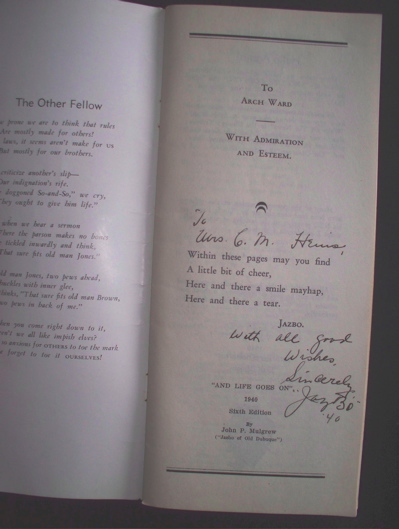 The Other Fellow
prone we are to think that rules
Are mostly made for others!
laws, it seems aren't make for us
But mostly for our brothers.
another's slip—
Our indignation's rife,
doggoned So-and-So," we cry,
"They ought to give him life."
when we hear a sermon
Where the parson makes no bones
tickled inwardly and think,
"That sure fits old man Jones."
man Jones, two pews ahead,
chuckles with inner glee,
"That sure fits old man Brown,
pews in back of me."
when you come right down to it,
we all like impish elves?
for OTHERS to toe the mark
forget to toe it OURSELVES!
To
Arch Ward
With Admiration
and Esteem.
To
Mrs. C. M.
Within these pages may you find
A little bit of cheer,
Here and there a smile mayhap,
Here and there a tear.
Jazbo.
With all good
Wishes,
Sincerely,
Jazbo
'40
"AND LIFE GOES ON"..
1940
Sixth Edition
By
John P. Mulgrew
("Jazbo of Old Dubuque")